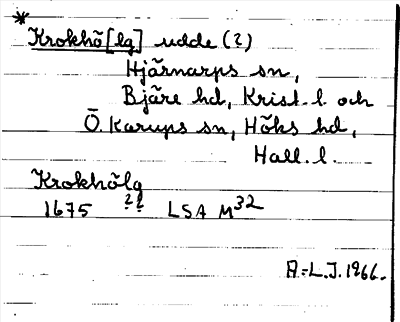 *
Krokhö[lg] udde (?)
Hjärnarps sn,
Bjäre hd, Krist. l. och
Ö. Karups sn, Höks hd,
Hall. l.
Krokhölg
1675 ?? LSA M32
A-L.J. 1966.